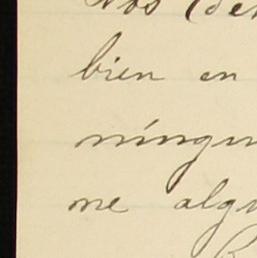 bien en
ningu
me algu